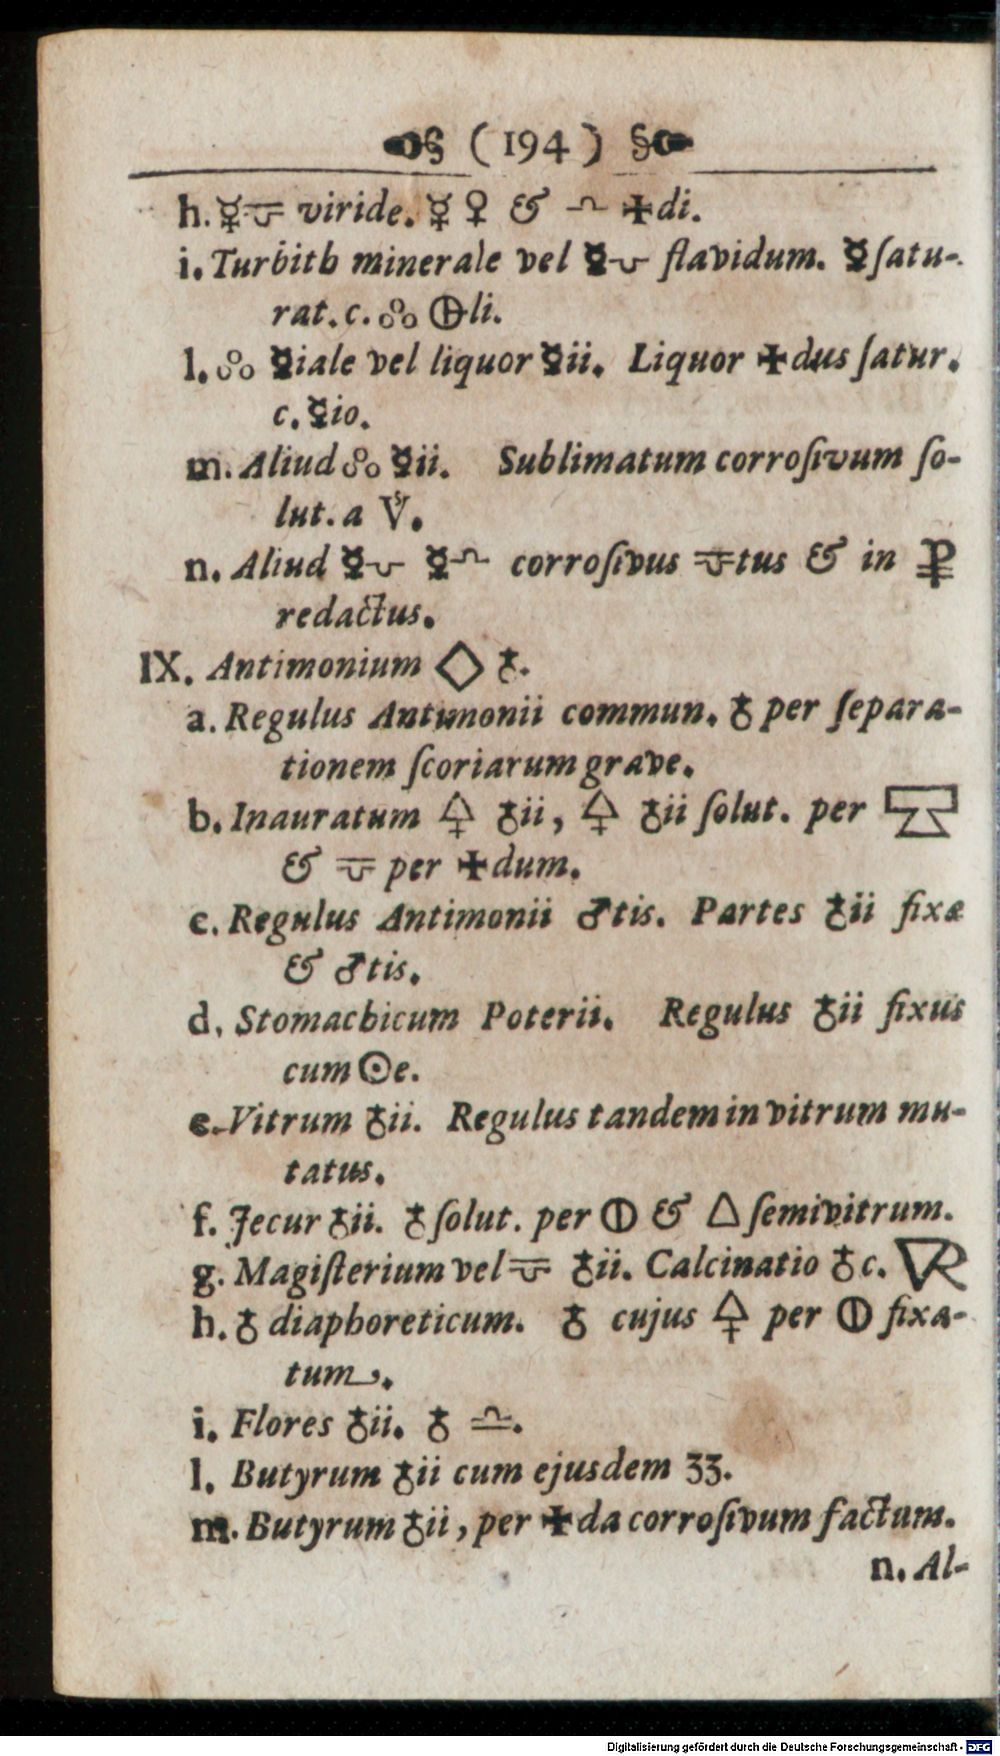 ( 194 )
h. ☿🝟 viride. ☿ ♀ & 🝞 ✠di.
i. Turbith minerale vel ☿ flavidum. ☿ ſatu-
rat. c. 🝆 🜨li.
l. 🝆 ☿iale vel liquor ☿ii. Liquor ✠dus ſatur.
c. ☿io.
m. Aliud 🝆 ☿ii. Sublimatum corroſivum ſo-
lut. a V.
n. Aliud ☿ ☿🝞 corroſivus 🝟tus & in
redactus.
IX. Antimonium ◇ ♁.
a. Regulus Antimonii commun. ♁ per ſepara-
tionem ſcoriarum grave.
b. Inauratum 🜍 ♁ii, 🜍 ♁ii ſolut. per
& 🝟 per ✠dum.
c. Regulus Antimonii ♂tis. Partes ♁ii fixæ
& ♂tis.
d. Stomachicum Poterii. Regulus ♁ii fixus
cum ☉e.
e. Vitrum ♁ii. Regulus tandem in vitrum mu-
tatus.
f. Jecur ♁ii. ♁ ſolut. per 🜕 & △ ſemivitrum.
g. Magiſterium vel 🝟 ♁ii. Calcinatio ♁ c. 🜆
h. ♁ diaphoreticum. ♁ cujus 🜍 per 🜕 fixa-
tum.
i. Flores ♁ii. ♁ ♎.
l. Butyrum ♁ii cum ejusdem ʒʒ.
m. Butyrum ♁ii, per ✠da corroſivum factum.
n. Al-
Digitalisierung gefördert durch die Deutsche Forschungsgemeinschaft - DFG